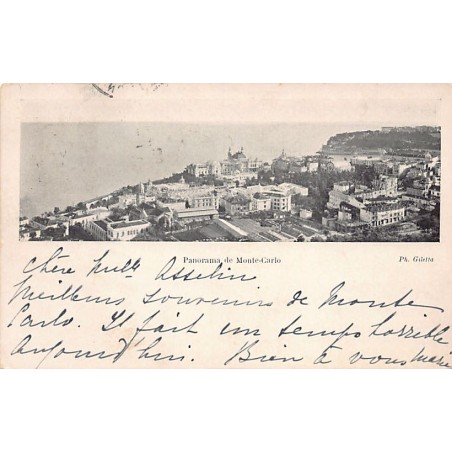 Panorama de Monte-Carlo
Ph. Giletta
Chère Melle Asselin
Meilleurs souvenirs de Monte
Carlo. Il fait un temps horrible
Aujourd'hui. Bien à vous Marie